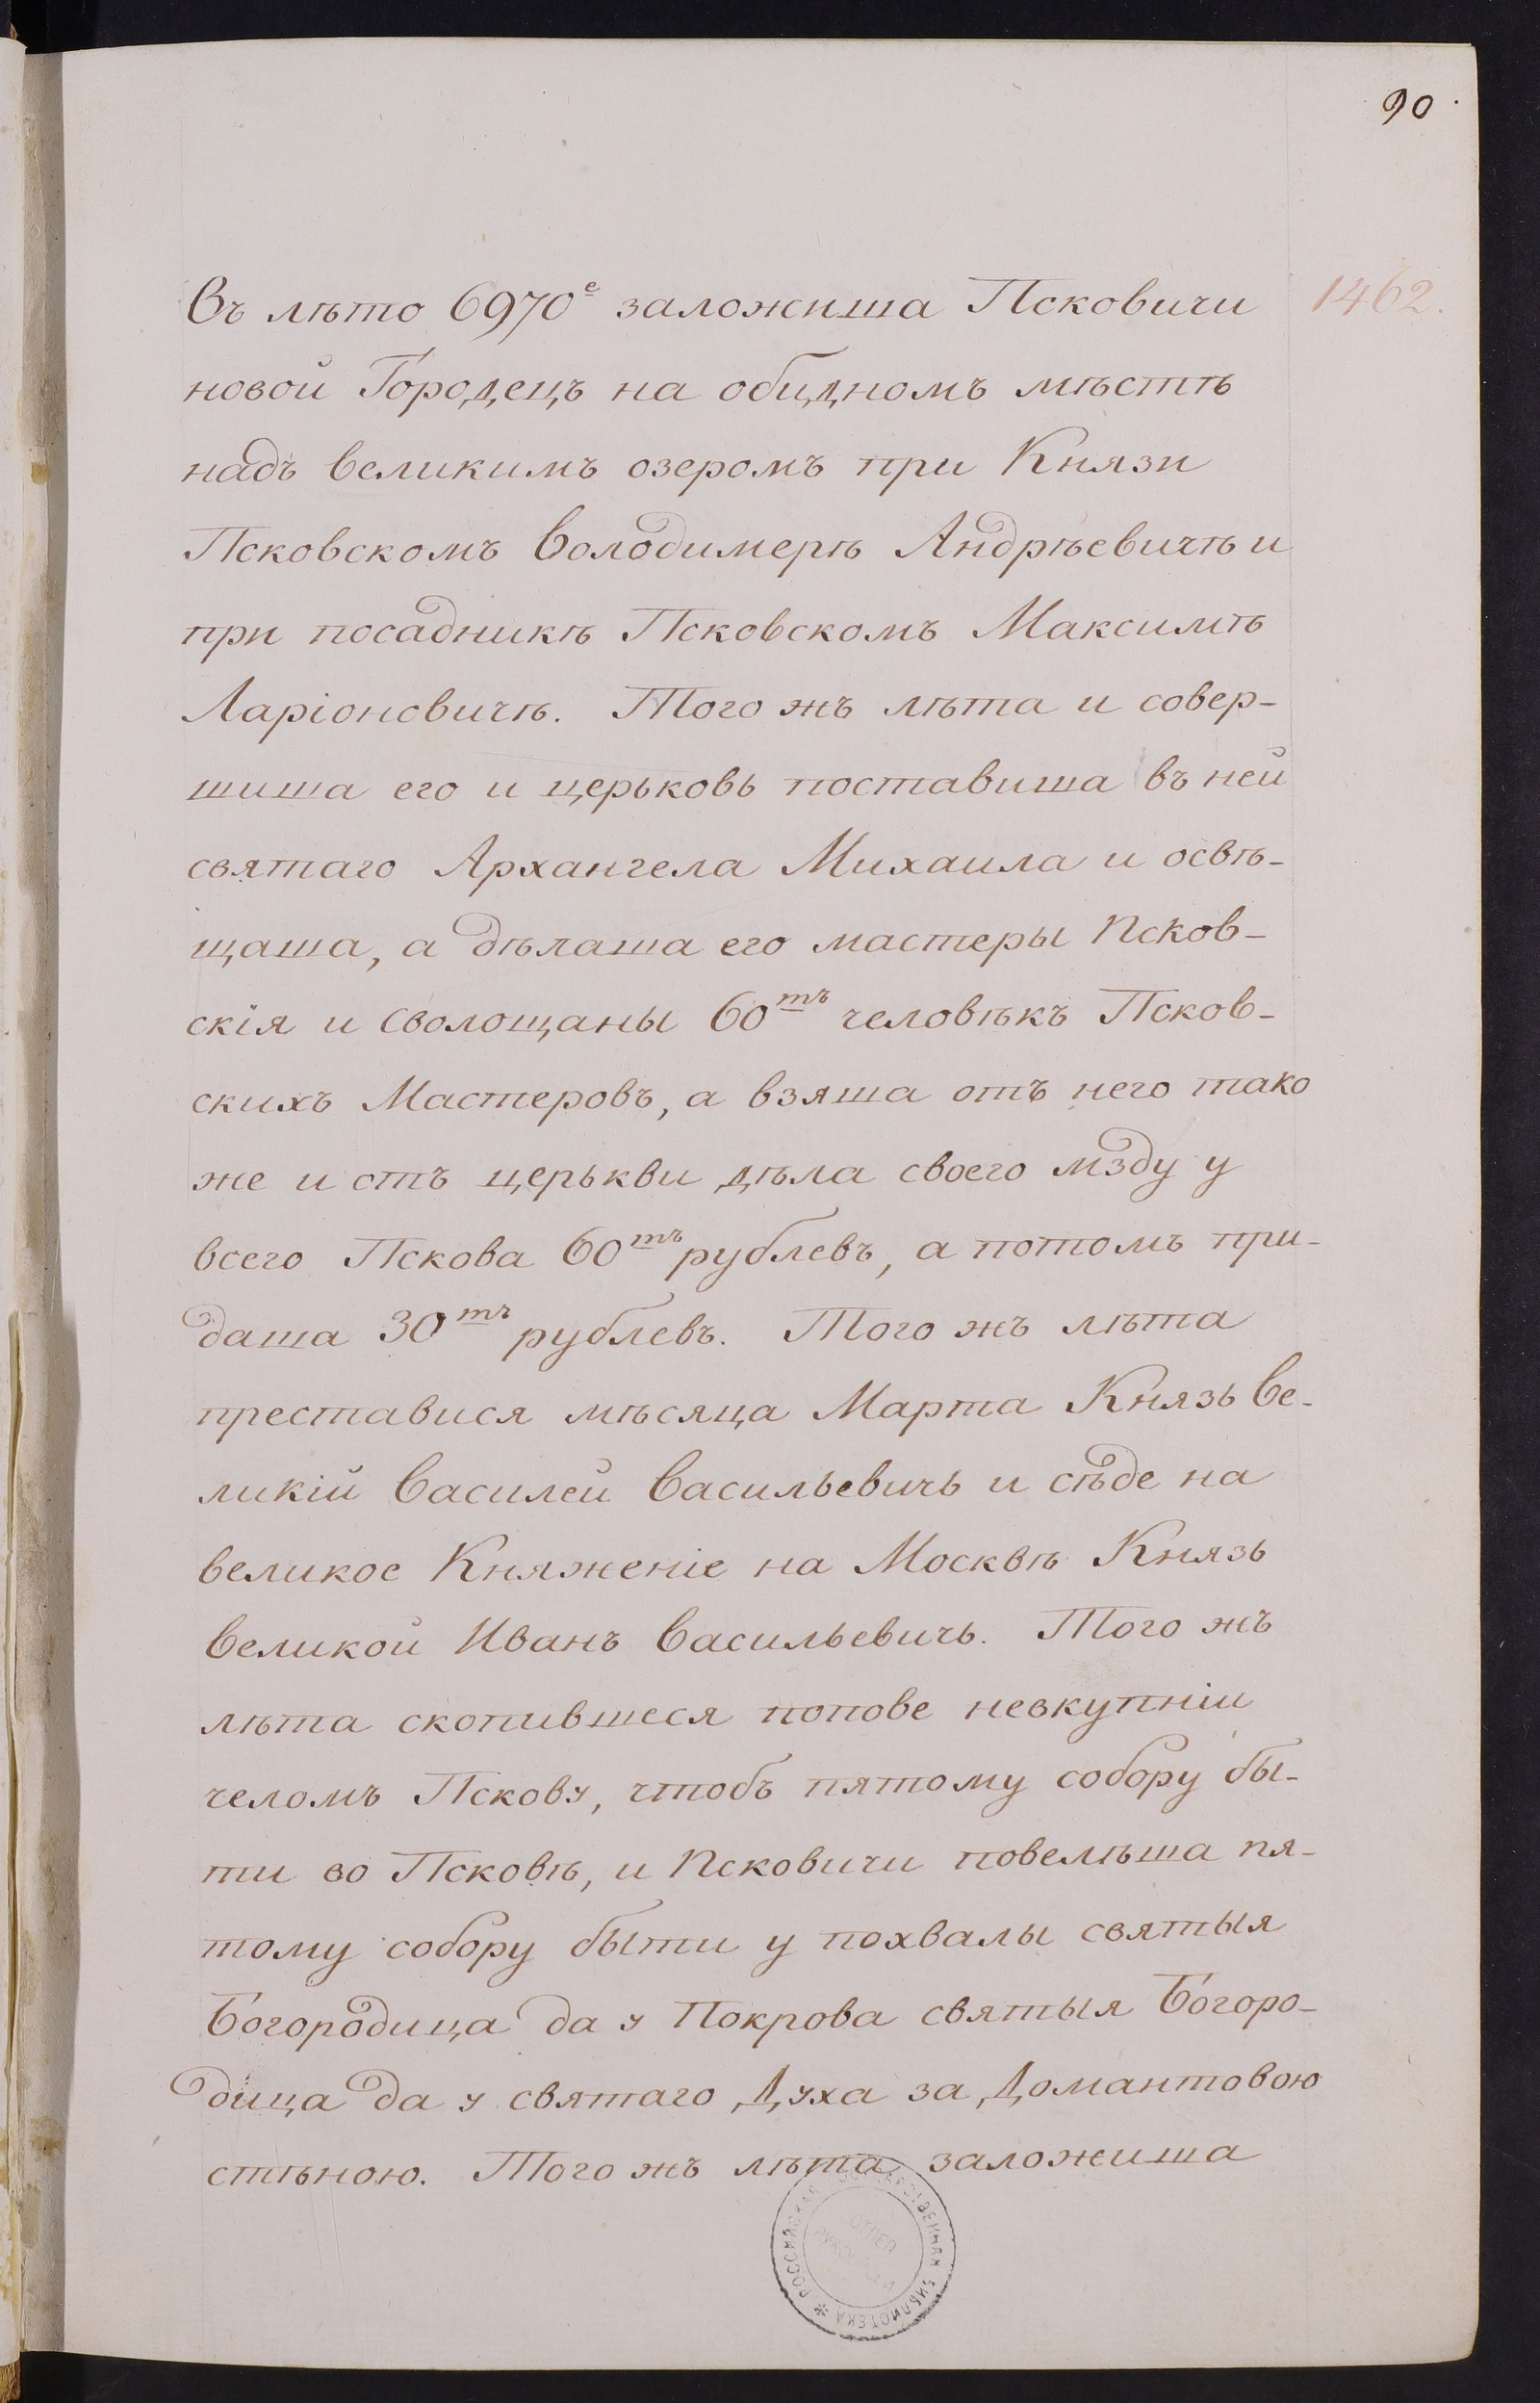 90.
Въ лѣто 6970е заложиша Псковичи 1462.
новой Городецъ на обидномъ мѣстѣ
надъ великимъ озеромъ при Князи
Псковскомъ Володимерѣ Андрѣевичѣ и
при посадникѣ Псковскомъ Максимѣ
Ларіоновичѣ. Того жъ лѣта и совер-
шиша его и церьковь поставиша въ ней
святаго Архангела Михаила и освѣ-
щаша, а дѣлаша его мастеры Псков-
скія и сволощаны 60тъ человѣкъ Псков-
скихъ Мастеровъ, а взяша отъ него тако
же и отъ церькви дѣла своего мзду у
всего Пскова 60тъ рублевъ, а потомъ при-
даша 30тъ рублевъ. Того жъ лѣта
преставися мѣсяца Марта Князь Ве-
ликій Василей Васильевичь и сѣде на
великое Княженіе на Москвѣ Князь
великой Иванъ Васильевичь. Того жъ
лѣта скопившеся попове невкупніи
челомъ Пскову, чтобъ пятому собору бы-
ти во Псковѣ, и Псковичи повелѣша пя-
тому собору быти у похвалы святыя
Богородица да у Покрова святыя Богоро-
дица да у святаго Духа за Домантовою
стѣною. Того жъ лѣта заложиша
РОССИЙСКАЯ ГОСУДАРСТВЕННАЯ БИБЛИОТЕКА
ОТДЕЛ
РУКОПИСЕЙ